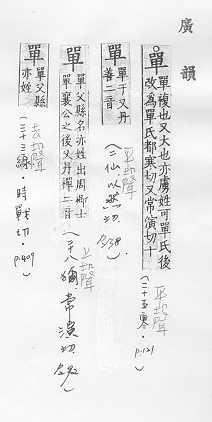 廣韻
單
單複也又大也亦虜姓可單氏後
改為單氏都寒切又常演切十
平聲
(二十五寒·p.121)
單
單于又丹
善二音
平聲
(二仙以然切.
單
單父縣名亦姓出周卿士
單襄公之後又丹禪二音
上聲
(二十八獮常演切.
單
單父縣
亦姓
去聲
(三十三線·時戰切·p.409)